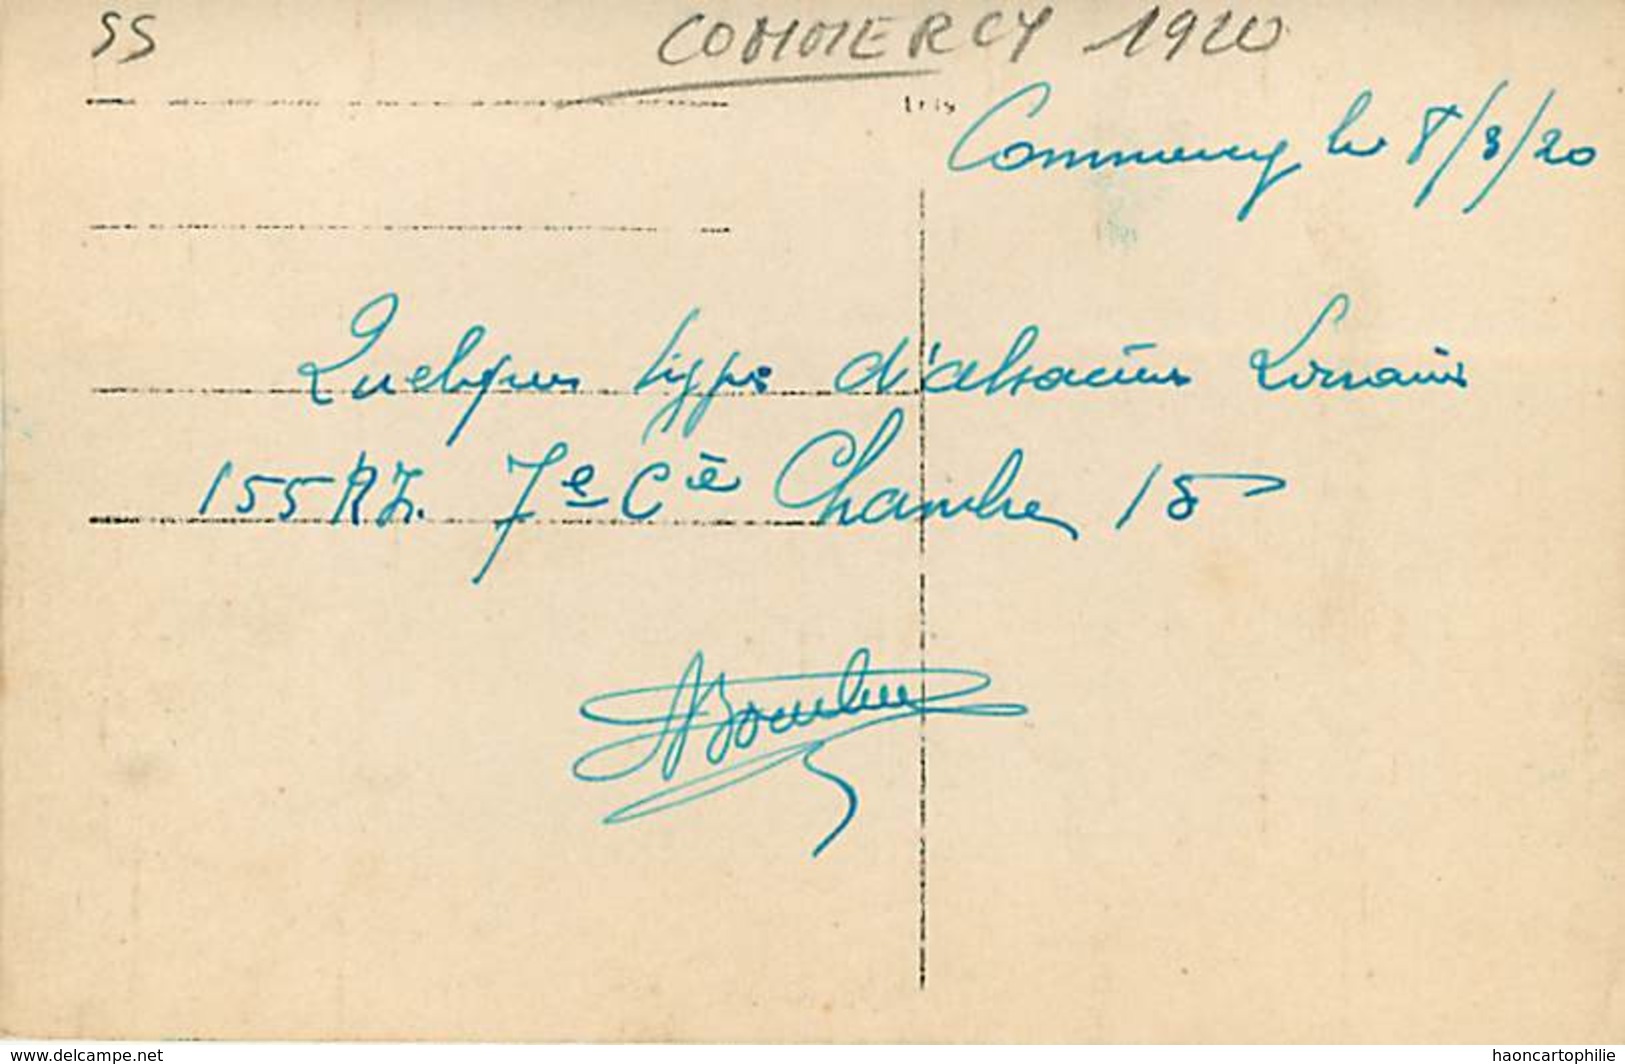 55 COMMERCY 1920
Commercy le 8/3/20
Quelques types d'alsaciens Lorrains
155 R.I. 7e Cie Chambre 18
www.delcampe.net
haoncartophilie